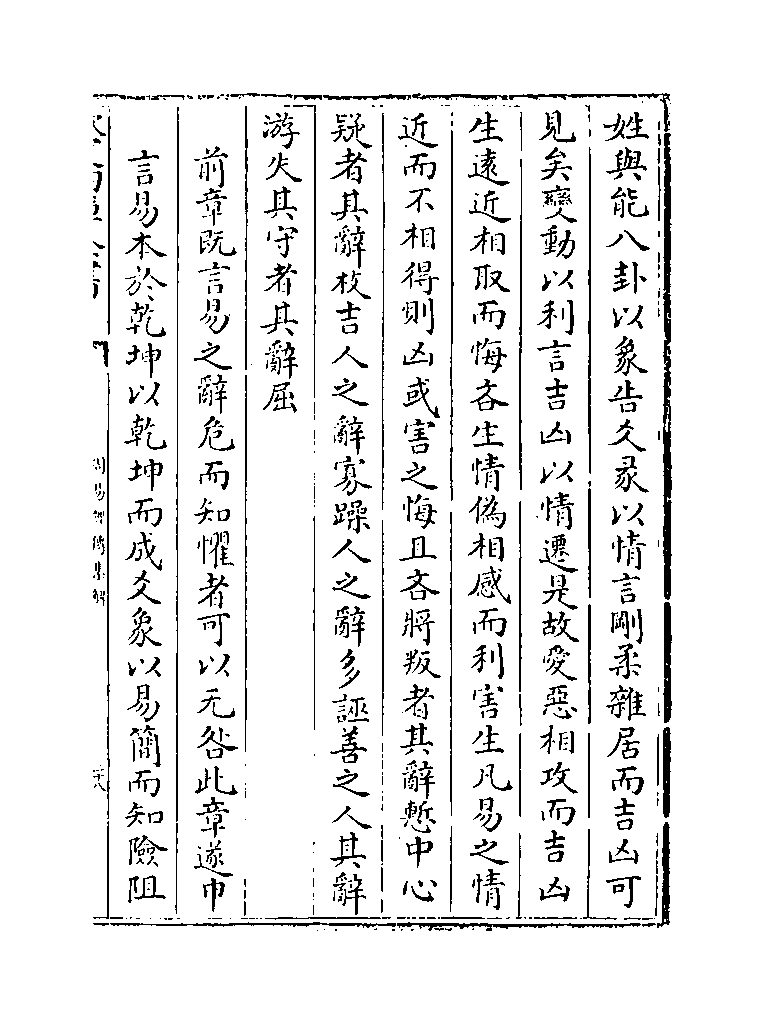 姓與能八卦以象告爻彖以情言剛柔雜居而吉凶可
見矣變動以利言吉凶以情遷是故愛惡相攻而吉凶
生遠近相取而悔吝生情偽相感而利害生凡易之情
近而不相得則凶或害之悔且吝將叛者其辭慙中心
疑者其辭枝吉人之辭寡躁人之辭多誣善之人其辭
游失其守者其辭屈
前章既言易之辭危而知懼者可以无咎此章遂申
言易本於乾坤以乾坤而成爻象以易簡而知險阻